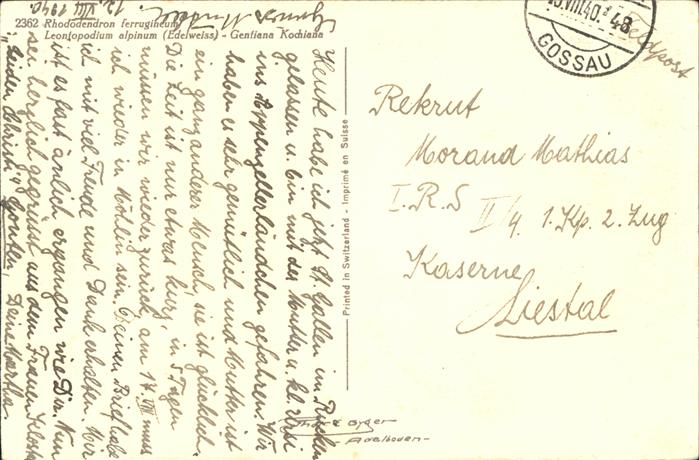 2362 Rhododendron ferrugineum
Leontopodium alpinum (Edelweiss) - Gentiana Kochiana
12. VIII 1940.
Heute habe ich jetzt St. Gallen im Rücken
gelassen u. bin mit der Mutter u. kl.
ins Appenzellerländchen gefahren. Wir
haben es sehr gemütlich und Mutter ist
ein ganz anderer Mensch, sie ist glücklich.
Die Zeit ist nur etwas kurz, in 5 Tagen
müssen wir wieder zurück, am 17. VIII muss
ich wieder in Möhlin sein. Deinen Brief habe
ich mit viel Freude und Dank erhalten. Mir
ist es fast änlich ergangen wie Dir. Nun
sei herzlich gegrüsst aus dem Frauenkloster
Deine Martha.
Printed in Switzerland - Imprimé en Suisse
VIII.40. 48
GOSSAU
Feldpost
Rekrut
Morand Mathias
I. R. S II/4 1. Kp. 2. Zug
Kaserne
Liestal
Gyger
- Adelboden -